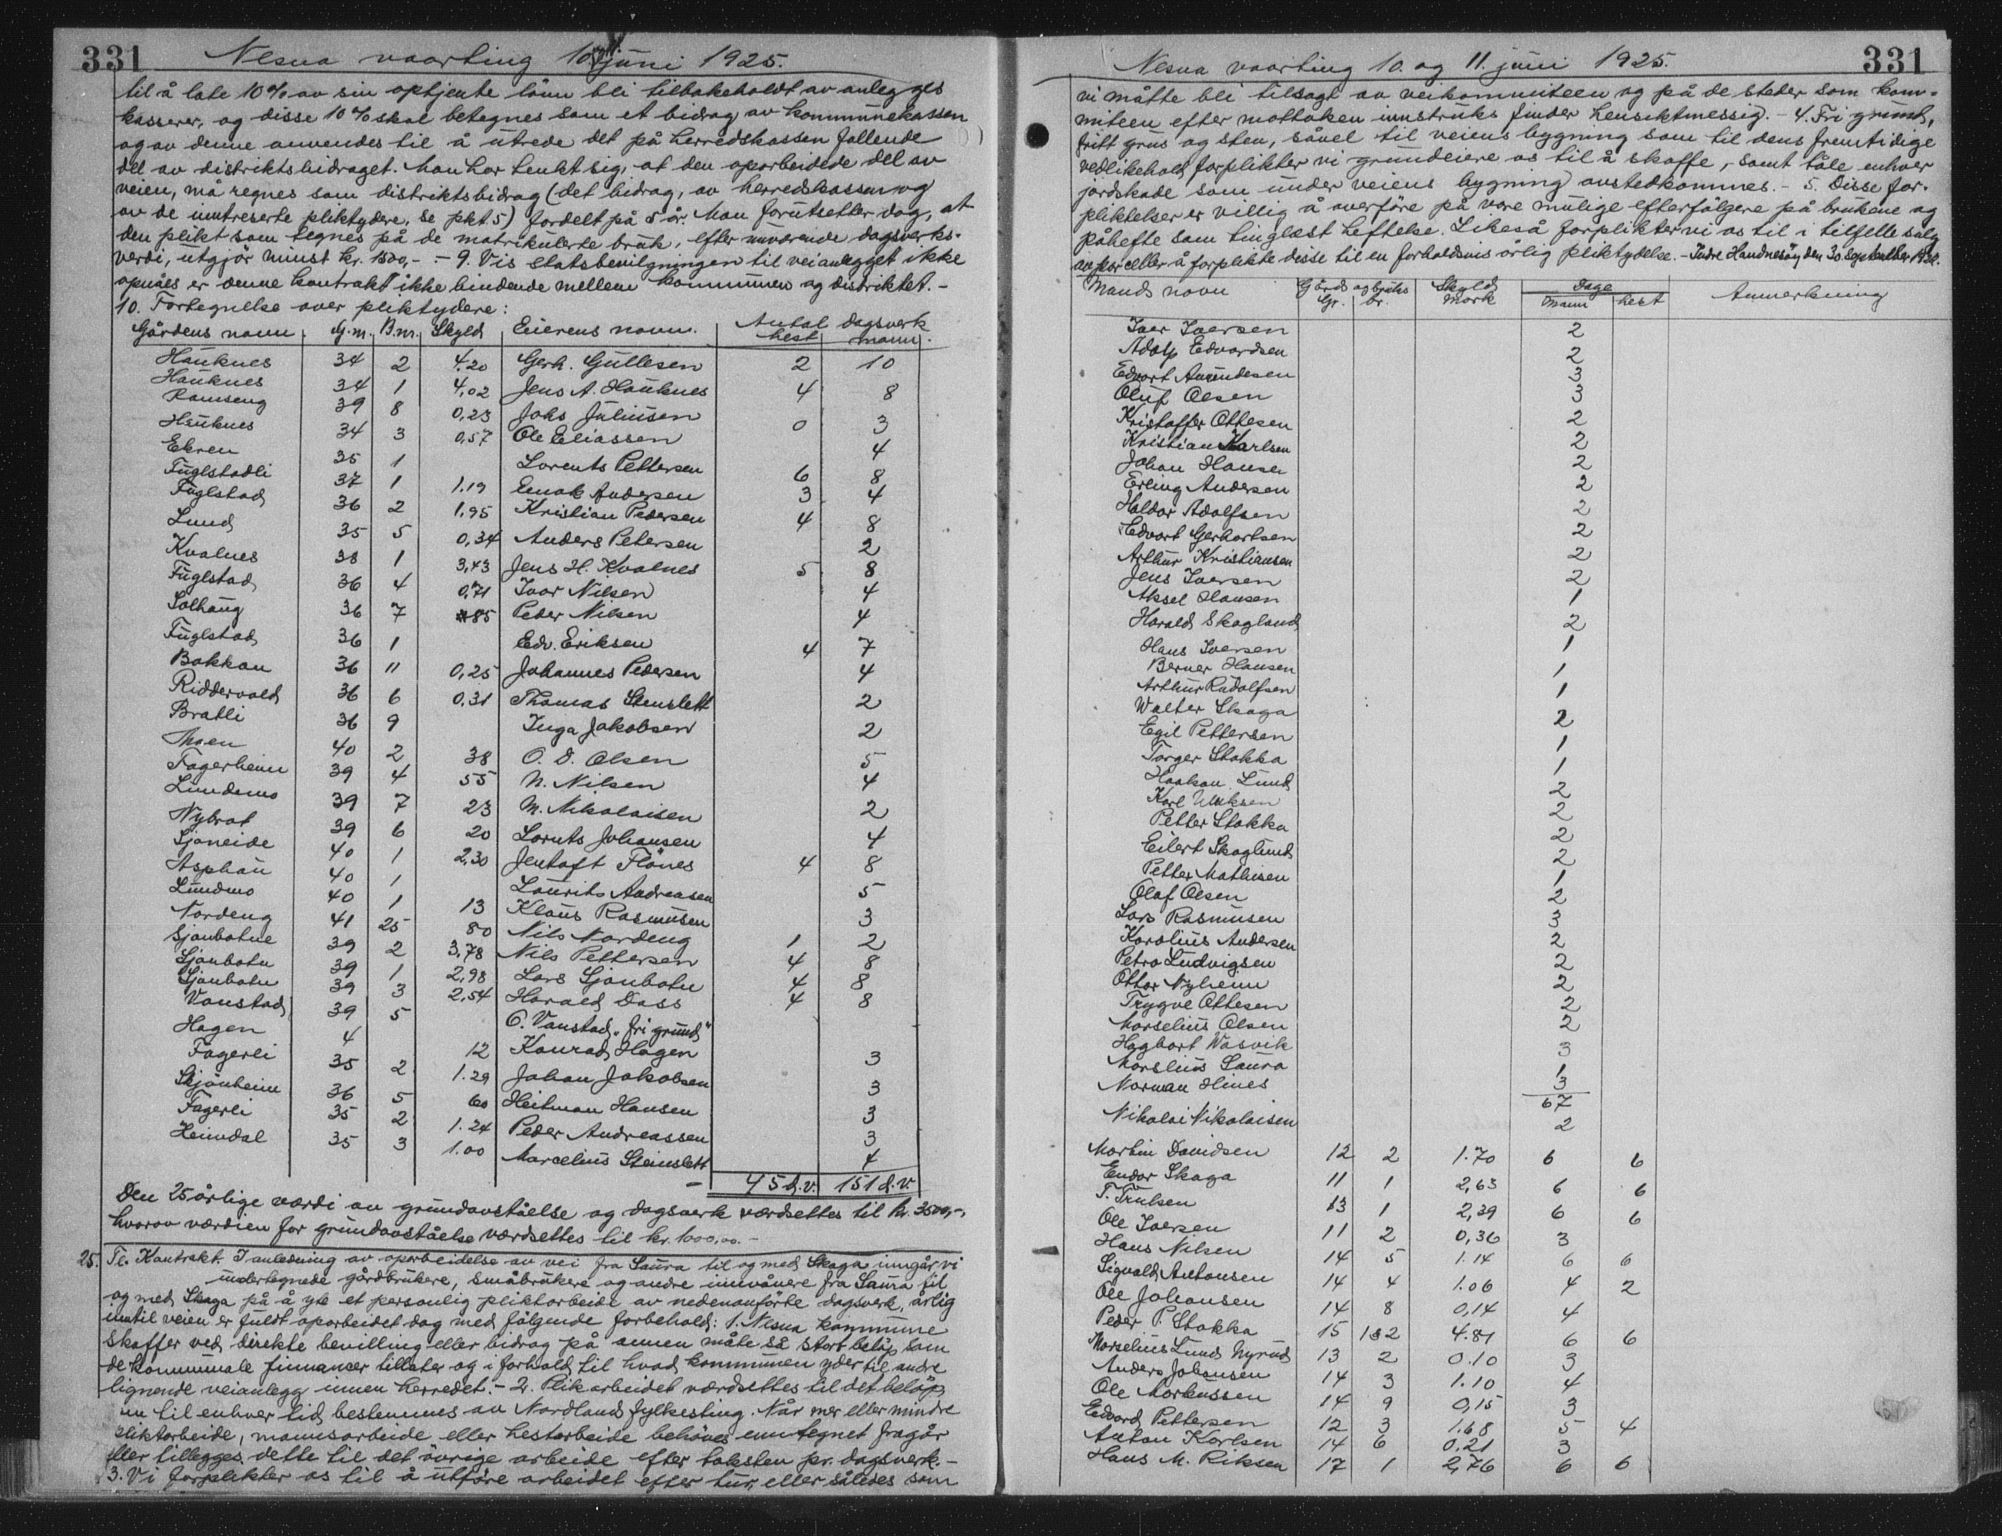 331 Nesna vaarting 10. juni 1925.
til å late 10% av sin optjente lönn bli tilbakeholdt av anlegges
kasserer, og disse 10% skal betegnes som et bidrag av kommunekassen
og av denne anvendes til å utrede det på herredskassen fallende
del av distriktsbidraget. Man har tenkt sig, at den oparbeidede del av
veien, må regnes som distriktsbidrag (det bidrag, av herredskassen og
av de intreserte pliktydere, se pkt. 5) fordelt på 5 år. Man forutsetter dog, at
den plikt som tegnes på de matrikulerte bruk, efter nuværende dagsverks-
verdi, utgjör minst kr. 1500,- - 9. Vis statsbevilgningen til veianlegget ikke
opnåes er denne kontrakt ikke bindende mellem kommunen og distriktet. -
10. Fortegnelse over pliktydere:
Gårdens navn. G.nr. B.nr. Skyld Eierens navn. Antal dagsverk hest mann.
Hauknes 34 2 4.20 Gerh. Gullesen 2 10
Hauknes 34 1 4,02 Jens A. Hauknes 4 8
Ramseng 39 8 0,23 Johs Juliusen 0 3
Hauknes 34 3 0,57 Ole Eliassen 4
Ekren 35 1 Lorents Pettersen 6 8
Fuglstadli 37 1 1.19 Enok Andersen 3 4
Fuglstad 36 2 1,95 Kristian Pedersen 4 8
Lund 35 5 0,34 Anders Petersen 2
Kvalnes 38 1 3,43 Jens H. Kvalnes 5 8
Fuglstad 36 4 0,71 Ivar Nilsen 4
Solhaug 36 7 85 Peder Nilsen 4
Fuglstad 36 1 Edv. Eriksen 4 7
Bakkan 36 11 0,25 Johannes Pedersen 4
Riddervold 36 6 0,31 Thomas Stenslett 2
Bratli 36 9 Inga Jakobsen 2
Moen 40 2 38 O. D. Olsen 5
Fagerheim 39 4 55 N. Nilsen 4
Lundmo 39 7 23 M. Nikolaisen 2
Nybrot 39 6 20 Lornts Johansen 4
Sjoneide 40 1 2,30 Jentoft Flönes 4 8
Asphau 40 1 Laurits Andreasen 5
Lundmo 40 1 13 Klaus Rasmussen 3
Nordeng 41 25 80 Nils Nordeng 1 2
Sjonbotne 39 2 3,78 Nils Pettersen 4 8
Sjonbotn 39 1 2,98 Lars Sjonbotn 4 8
Sjonbotn 39 3 2,54 Harald Dass 4 8
Vanstad 39 5 O. Vanstad "fri grund"
Hagen 4 12 Konrad Hagen 3
Fagerli 35 2 1.29 Johan Jakobsen 3
Skjönheim 36 5 60 Heitman Hansen 3
Fagerli 35 2 1.24 Peder Andreassen 3
Heimdal 35 3 1.00 Marcelius Steinslett 4
45 d.v. 151 d.v.
Den 25 årlige værdi av grundavståelse og dagsverk værdsettes til kr. 3500,-,
hvorav værdien for grundavståelse værdsettes til kr. 1000,00. -
25. Tl. Kontrakt. I anledning av oparbeidelse av vei fra Saura til og med Skaga inngår vi
undertegnede gårdbrukere, småbrukere og andre innvånere fra Saura til
og med Skaga på å yte et personlig pliktarbeide av nedenanförte dagsverk, årlig
inntil veien er fuldt oparbeidet dog med fölgende forbehold: 1. Nesna kommune
skaffer ved direkte bevilling eller bidrag på annen måte så stort belöp som
de kommunale finnancer tillater og i forhold til hvad kommunen yder til andre
lignende veianlegg innen herredet. - 2. Plikarbeidet værdsettes til det belöp
til enhver tid bestemmes av Nordland fylkesting. Når mer eller mindre
pliktarbeide, mannsarbeide eller hestarbeide behöves enn tegnet fragår
eller tillegges dette til det övrige arbeide efter taksten pr. dagsverk. -
3. Vi forplikter os til å utföre arbeidet efter tur, eller således som
Nesna vaarting 10. og 11. juni 1925. 331
vi måtte bli tilsagt av veikommiteen og på de steder som kom-
miteen efter mottaken innstruks finder hensiktmessig. - 4. Fri grund,
fritt grus og sten, såvel til veiens bygning som til dens fremtidige
vedlikehold forplikter vi grundeiere os til å skaffe, samt tåle enhver
jordskade som under veiens bygning avstedkommes. - 5. Disse for-
pliktelser er villig å overföre på vore mulige efterfölgere på brukene og
påhefte som tinglæst heftelse. Likeså forplikter vi os til i tilfelle salg
av parceller å forplikte disse til en forholdsvis årlig pliktydelse. - Indre Handnesöy den 30. september 1924.
Mands navn Gårds og bruks Gr. br. Skyld Mark Dage Mann hest Anmerkning
Iver Iversen 2
Adolf Edvardsen 2
Edvart Amundesen 3
Oluf Olsen 3
Kristoffer Ottesen 2
Kristian Karlsen 2
Johan Hansen 2
Erling Andersen 2
Haldor Adolfsen 2
Edvart Gerhartsen 2
Arthur Kristiansen 2
Jens Iversen 2
Aksel Hansen 1
Harald Skogland 2
Hans Iversen 1
Berner Hansen 1
Arthur Rudolfsen 1
Walter Skaga 2
Egil Pettersen 1
Torger Stokka 1
Haakon Lund 2
Karl Ulriksen 2
Petter Stokka 2
Eilert Skoglund 2
Petter Mathisen 1
Olaf Olsen 2
Lars Rasmusen 3
Karolius Andersen 2
Petra Ludvigsen 2
Ottar Nyheim 2
Trygve Ottesen 2
Marselius Olsen 2
Hagbart Wasvik 3
Marslius Saura 1
Norman Hines 3
67
Nikolai Nikolaisen 2
Martin Davidsen 12 2 1.70 6 6
Endor Skaga 11 1 2,63 6 6
T. Trulsen 13 1 2,39 6 6
Ole Iversen 11 2 0,36 3
Hans Nilsen 14 5 1.14 6 6
Sigvald Antonsen 14 4 1.06 4 2
Ole Johansen 14 8 0,14 4
Peder P. Stokka 15 1&2 4.81 6 6
Marselius Lund Nyrud 13 2 0.10 3
Anders Johansen 14 3 1.10 4
Ole Markussen 14 9 0,15 3
Edvard Pettersen 12 3 1.68 5 4
Anton Karlsen 14 6 0,21 3
Hans M. Riksen 17 1 2,76 6 6